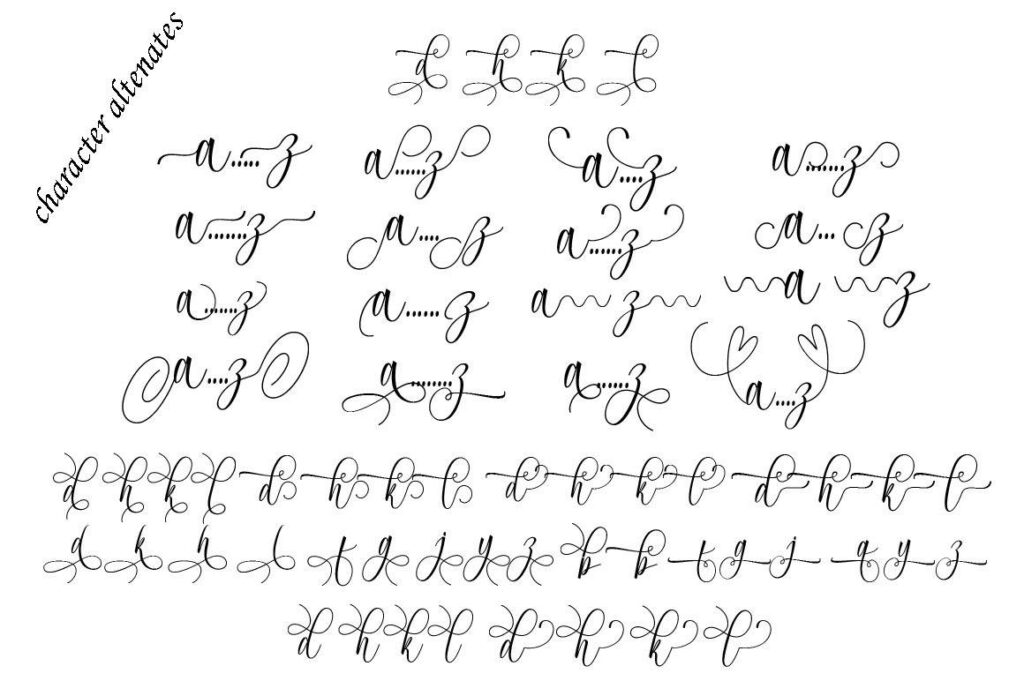 character altenates
d h k l
a.....z a......z a....z a.......z
a.......z a....z a......z a...cz
a.......z a......z a z a z
a....z a........z a......z a....z
d h k l d h k l d h k l d h k l
d k h l t g j y z b b t g j q y z
d h k l d h k l